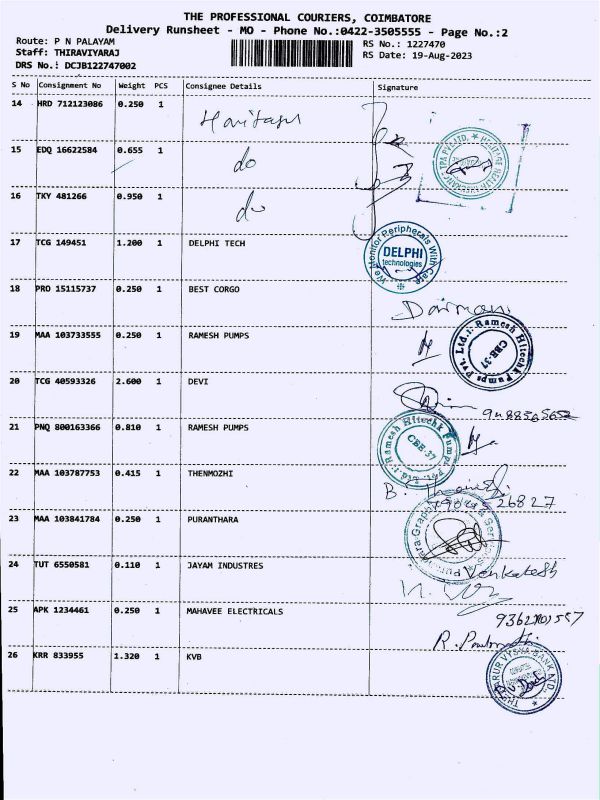 THE PROFESSIONAL COURIERS, COIMBATORE
Delivery Runsheet - MO - Phone No.:0422-3505555 - Page No.:2
Route: P N PALAYAM
RS No.: 1227470
Staff: THIRAVIYARAJ
RS Date: 19-Aug-2023
DRS No.: DCJB122747002
S No Consignment No Weight PCS Consignee Details Signature
14 HRD 712123086 0.250 1
15 EDQ 16622584 0.655 1 do
16 TKY 481266 0.950 1 do
17 TCG 149451 1.200 1 DELPHI TECH
We Monitor Peripherals With Care
DELPHI
technologies
18 PRO 15115737 0.250 1 BEST CORGO
19 MAA 103733555 0.250 1 RAMESH PUMPS
Ramesh Hitechk Pumps Pvt. Ltd.
CBE-37
20 TCG 40593326 2.600 1 DEVI
21 PNQ 800163366 0.810 1 RAMESH PUMPS
Ramesh Hitechk Pumps Pvt. Ltd.
CBE-37
22 MAA 103787753 0.415 1 THENMOZHI
B.
23 MAA 103841784 0.250 1 PURANTHARA
24 TUT 6550581 0.110 1 JAYAM INDUSTRES
Venkatesh
25 APK 1234461 0.250 1 MAHAVEE ELECTRICALS
R.
26 KRR 833955 1.320 1 KVB